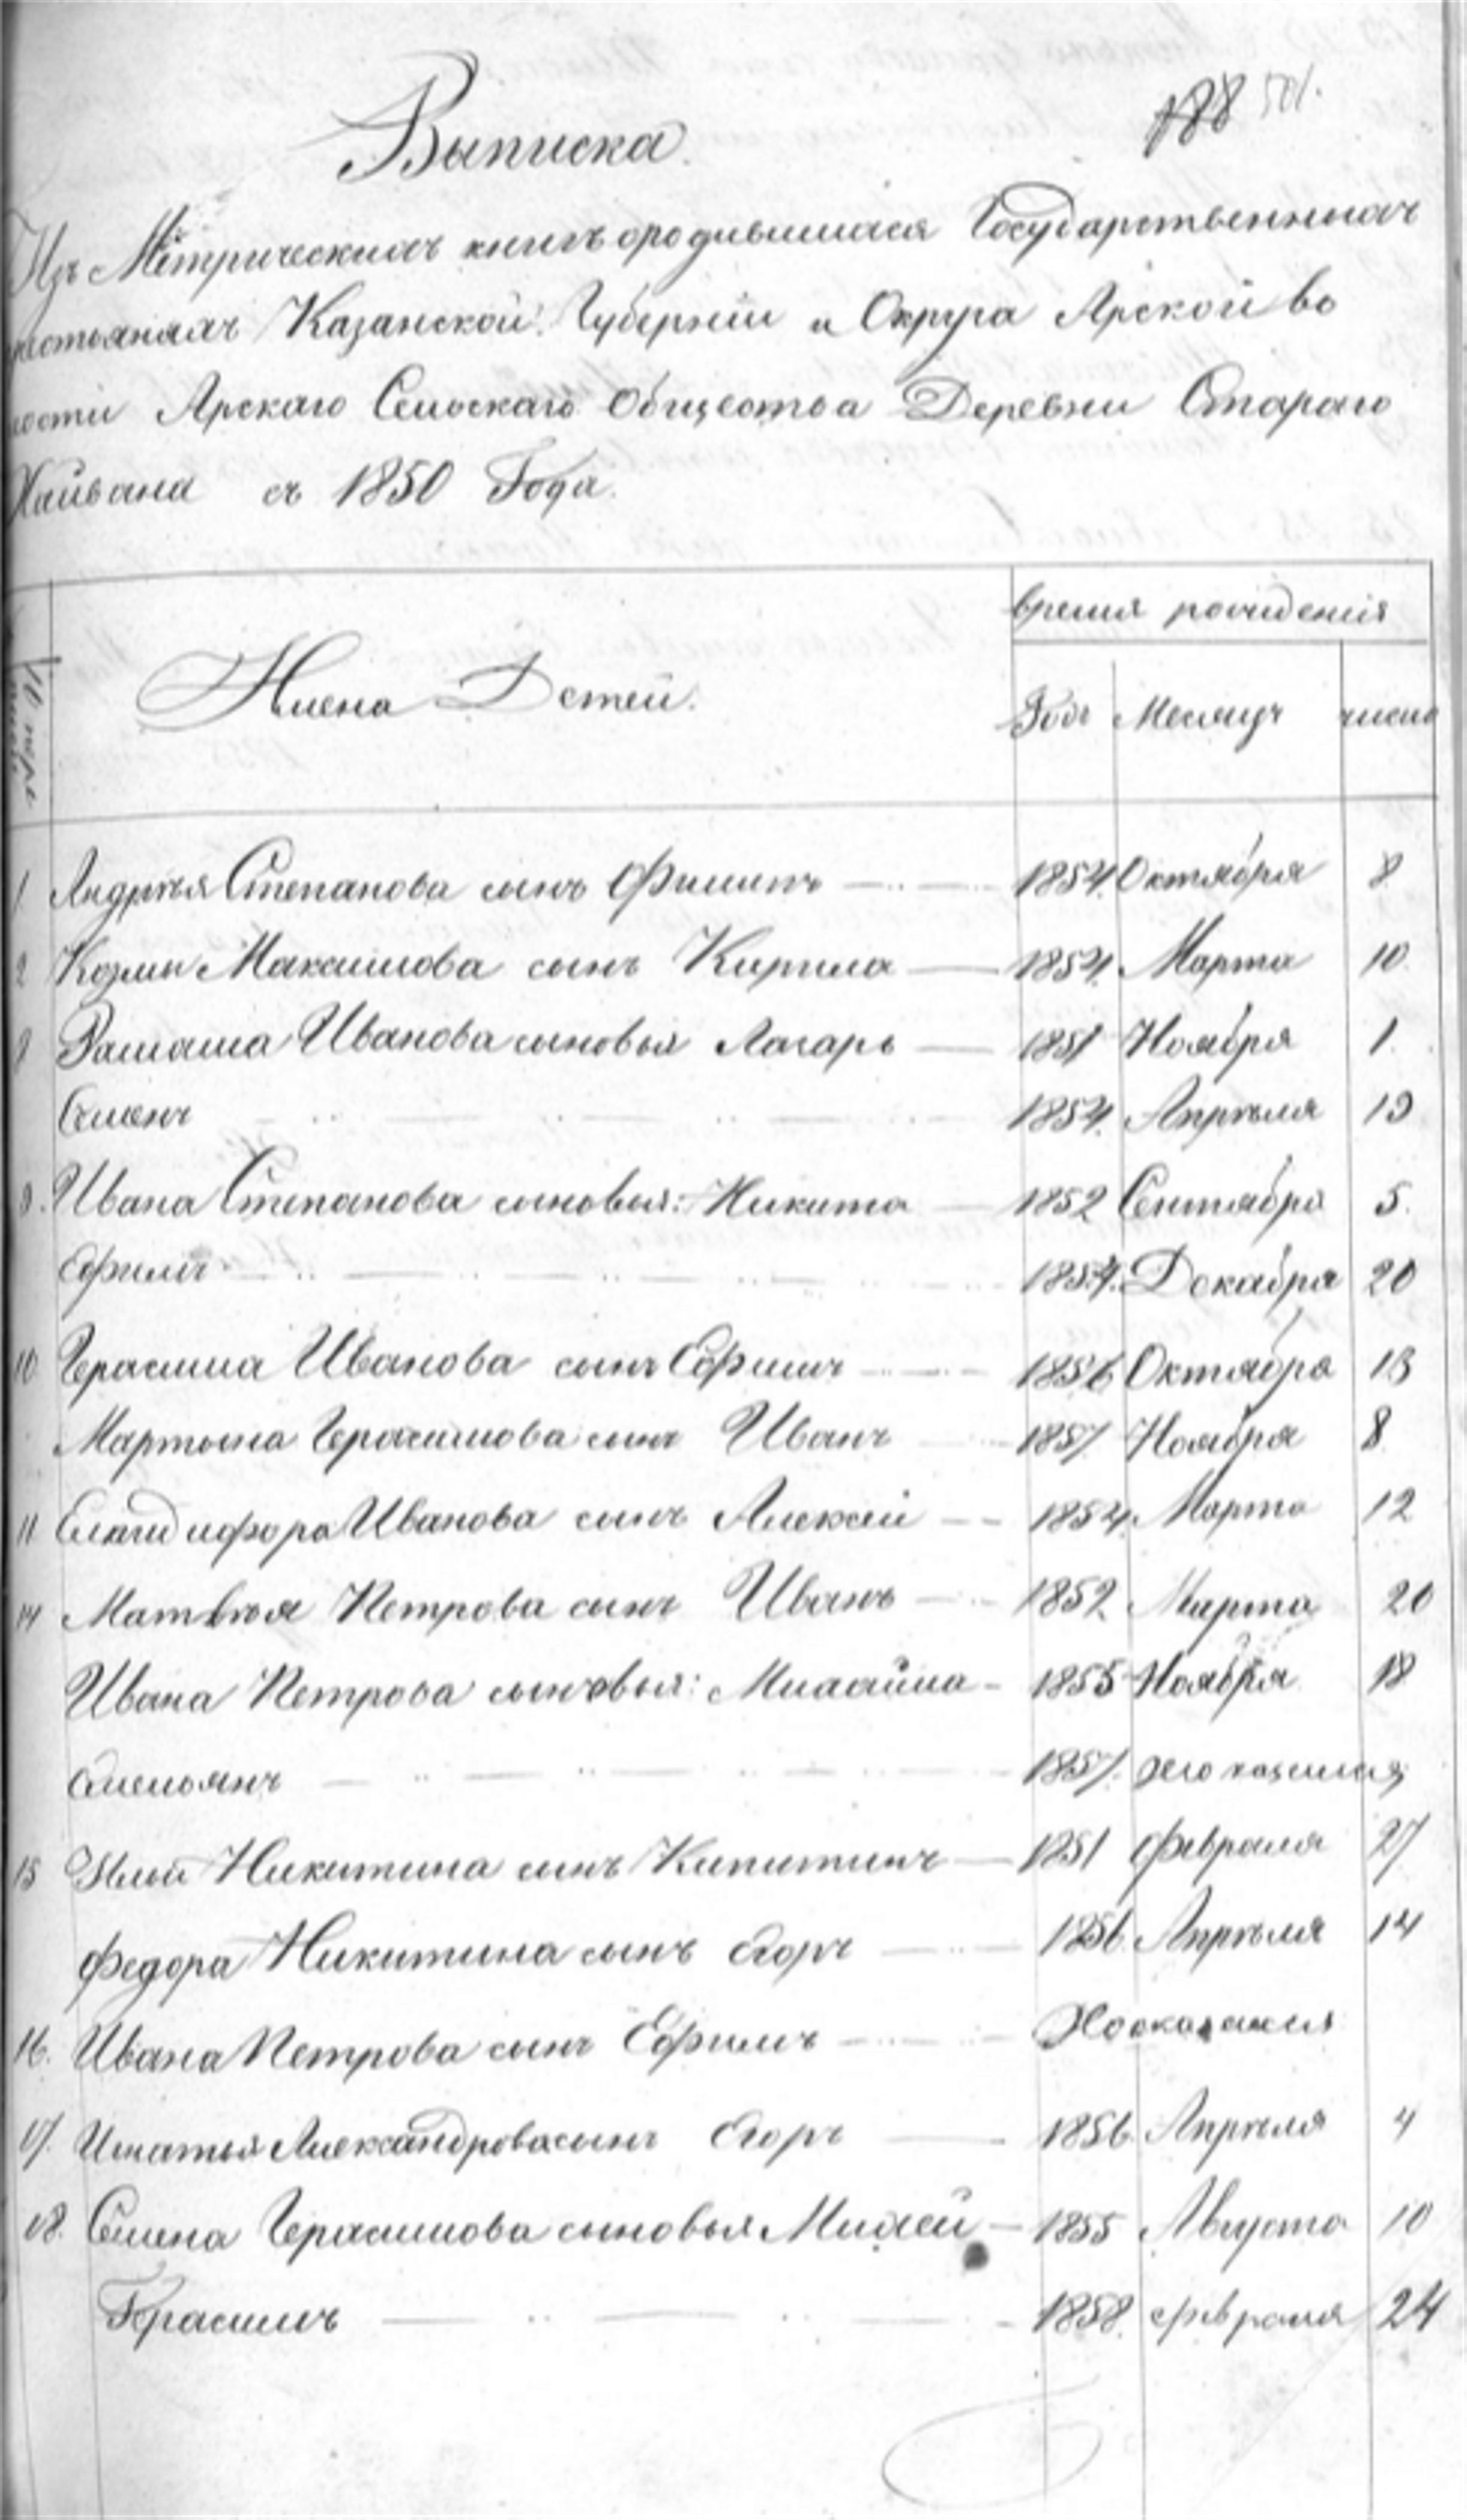 188
Выписка
Изъ Метрическихъ книгъ ородившихся Государственныхъ
Казанской Губерніи и Округа Арской во
лости Арскаго Сельскаго Общества Деревни Стараго
съ 1850 Года.
время рожденія
Имена Детей. Годъ Месяцъ число
1 Андрея Степанова сынъ Филипъ 1854. Октября 8
2 Козмы Максимова сынъ Кирила 1854. Марта 10
Ивановa сыновья Лазарь 1851 Ноября 1.
Семенъ 1854. Апреля 19
Ивана Степанова сыновья: Никита 1852 Сентября 5.
Ефимъ 1854. Декабря 20
10 Герасима Иванова сынъ Ефимъ 1856 Октября 13
Мартына Герасимова сынъ Иванъ 1857 Ноября 8
11 Иванова сынъ Алексей 1854. Марта 12
14 Матвея Петрова сынъ Иванъ 1852 Марта 20
Ивана Петрова сыновья: Михайла 1855 Ноября 18
Емельянъ 1857.
15 Ильи Никитина сынъ Капитинъ 1851 февраля 27
Федора Никитина сынъ Егоръ 1856 Апреля 14
16. Ивана Петрова сынъ Ефимъ
17. Игнатья Александрова сынъ Егоръ 1856 Апреля 4
18. Семена Герасимова сыновья 1855 Августа 10
Герасимъ 1858. февраля 24